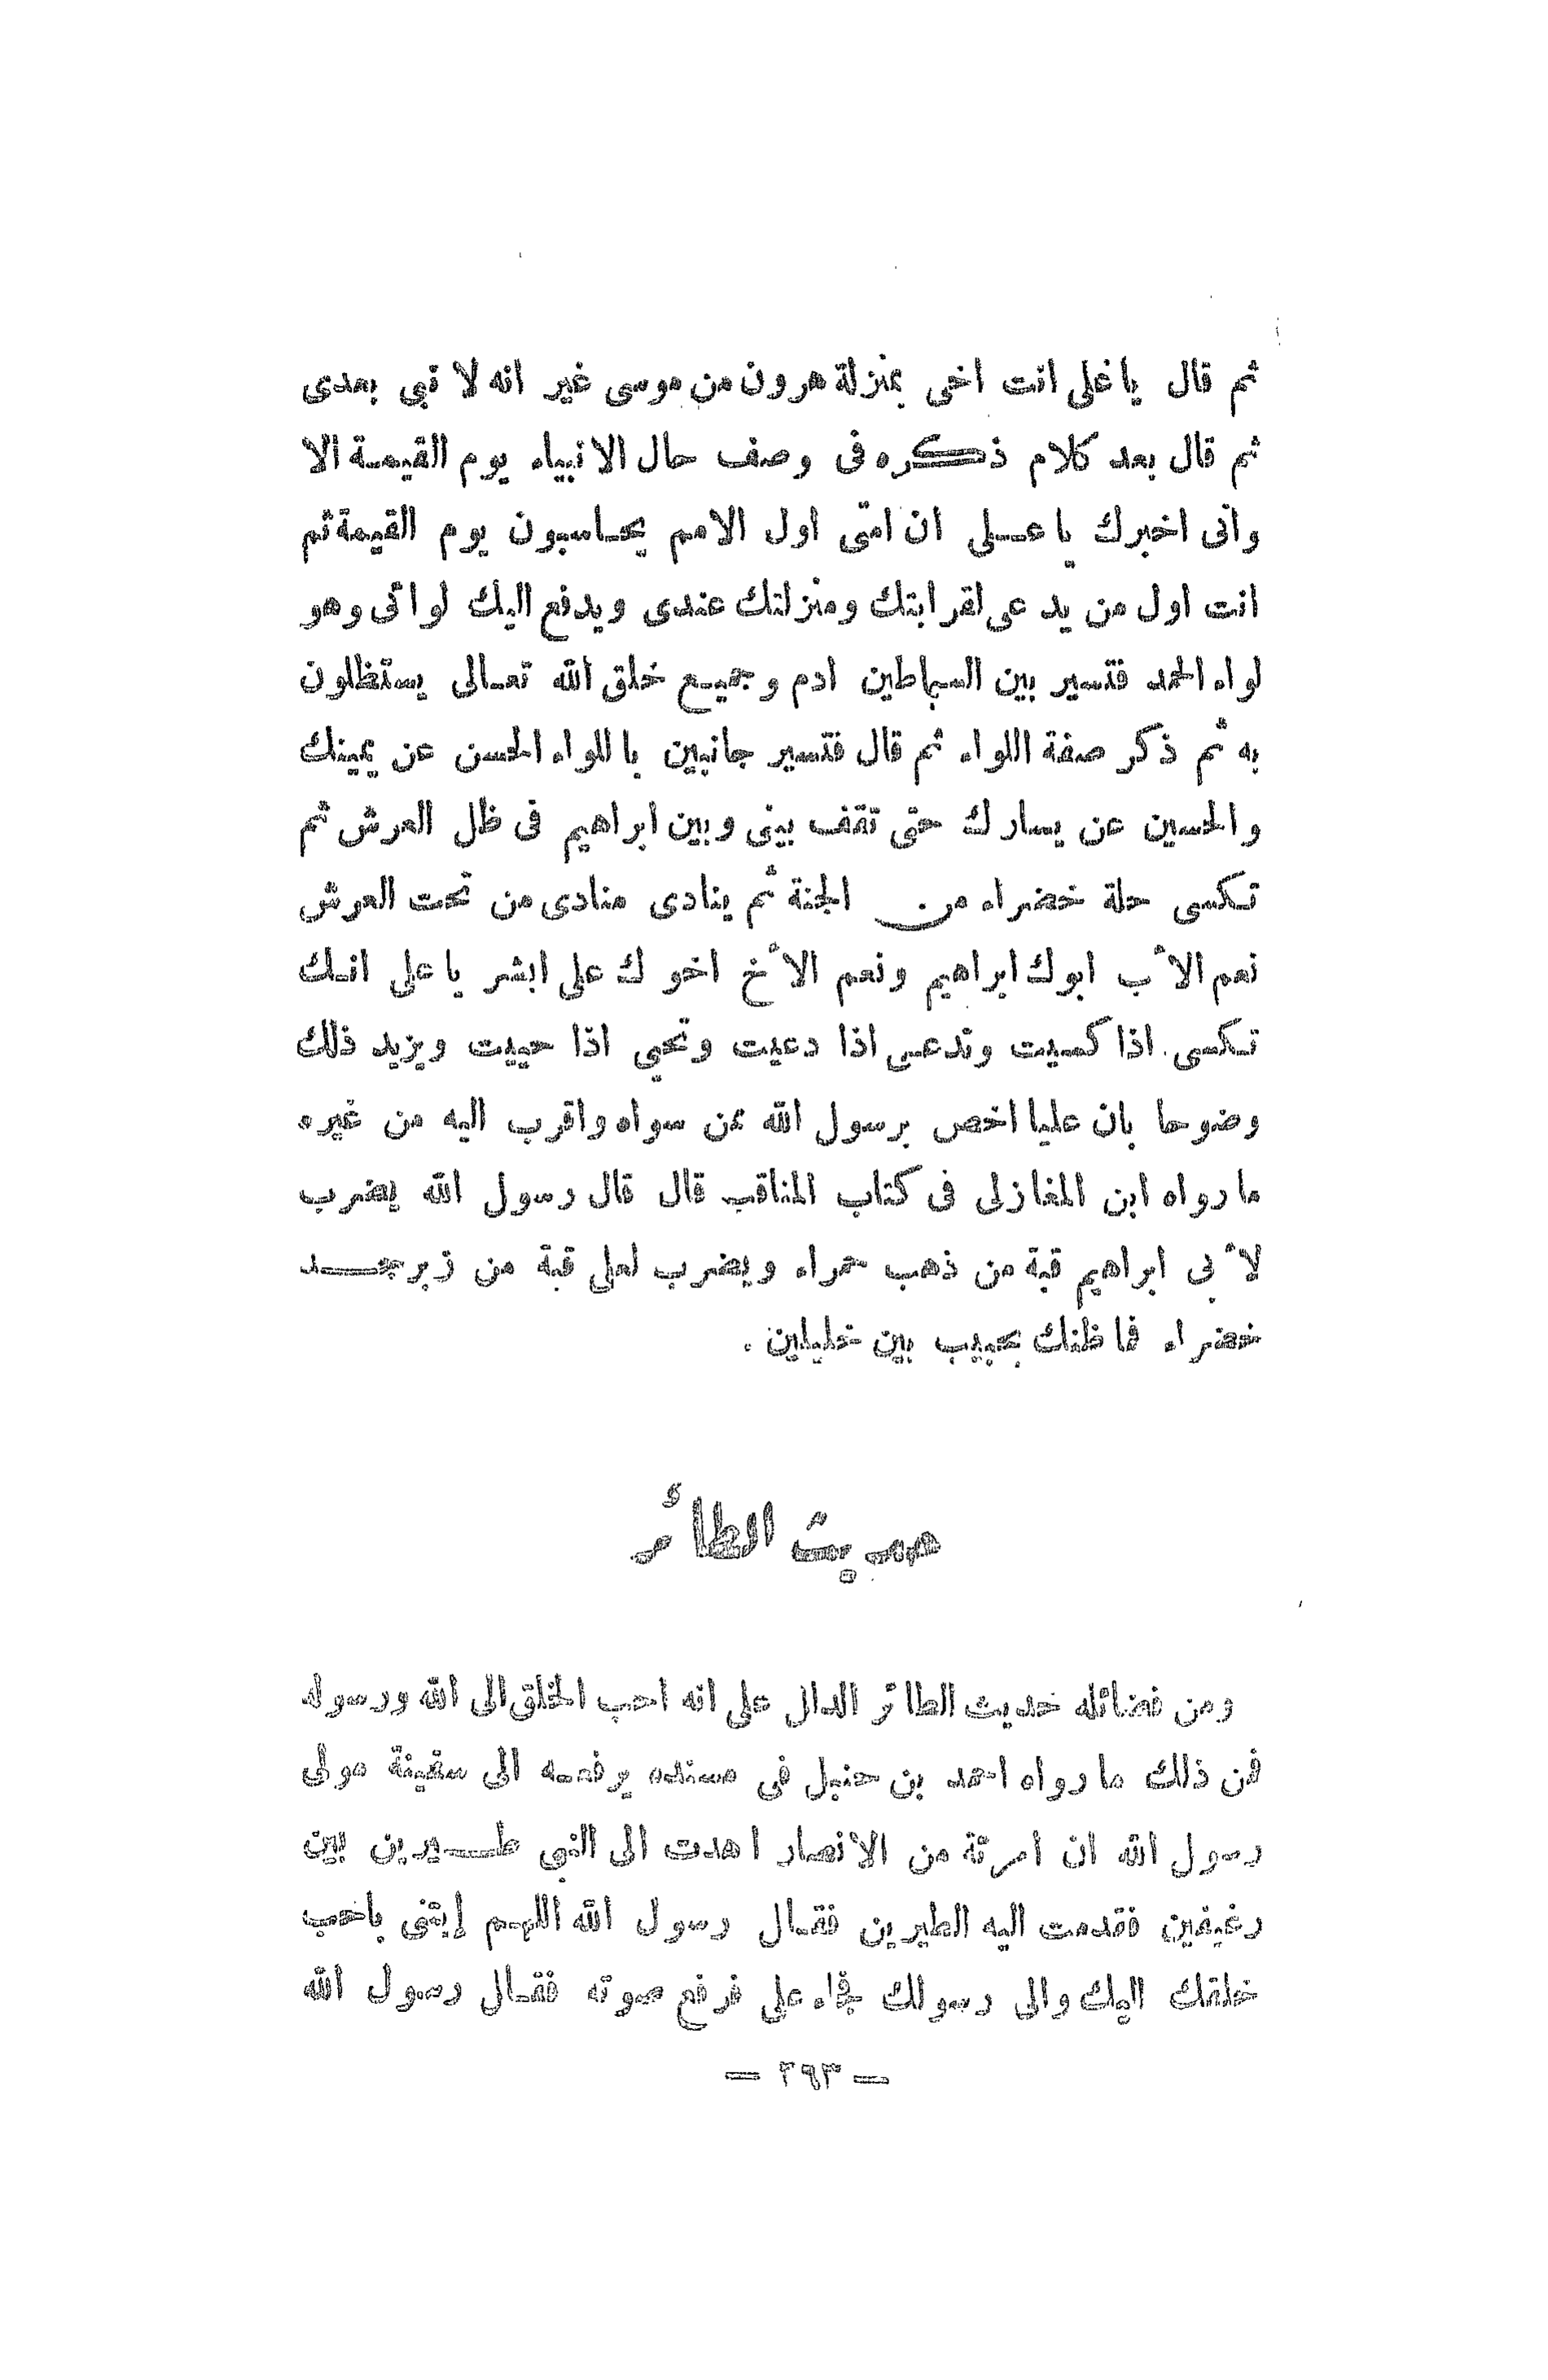 ثم قال يا علي انت اخي بمنزلة هرون من موسى غير انه لا نبي بعدى
ثم قال بعد كلام ذكره فى وصف حال الانبياء يوم القيمة الا
وانى اخبرك يا علي ان امتى اول الامم يحاسبون يوم القيمة ثم
انت اول من يدعى لقرابتك ومنزلتك عندى ويدفع اليك لوائى وهو
لواء الحمد فتسير بين السماطين ادم وجميع خلق الله تعالى يستظلون
به ثم ذكر صفة اللواء ثم قال فتسير جانبين باللواء الحسن عن يمينك
والحسين عن يسارك حتى تقف بينى وبين ابراهيم فى ظل العرش ثم
تكسى حلة خضراء من الجنة ثم ينادى منادى من تحت العرش
نعم الأب ابوك ابراهيم ونعم الأخ اخوك على ابشر يا على انك
تكسى اذا كسيت وتدعى اذا دعيت وتحيى اذا حييت ويزيد ذلك
وضوحا بان عليا اخص برسول الله ممن سواه واقرب اليه من غيره
ما رواه ابن المغازلى فى كتاب المناقب قال قال رسول الله يضرب
لأبى ابراهيم قبة من ذهب حمراء ويضرب لعلى قبة من زبرجد
خضراء فما ظنك بحبيب بين خليلين .
حديث الطائر
ومن فضائله حديث الطائر الدال على انه احب الخلق الى الله ورسوله
فمن ذلك ما رواه احمد بن حنبل فى مسنده يرفعه الى سفينة مولى
رسول الله ان امرئة من الانصار اهدت الى النبي طيرين بين
رغيفين فقدمت اليه الطيرين فقال رسول الله اللهم إيتنى باحب
خلقك اليك والى رسولك فجاء على فرفع صوته فقال رسول الله
— ٢٩٣ —